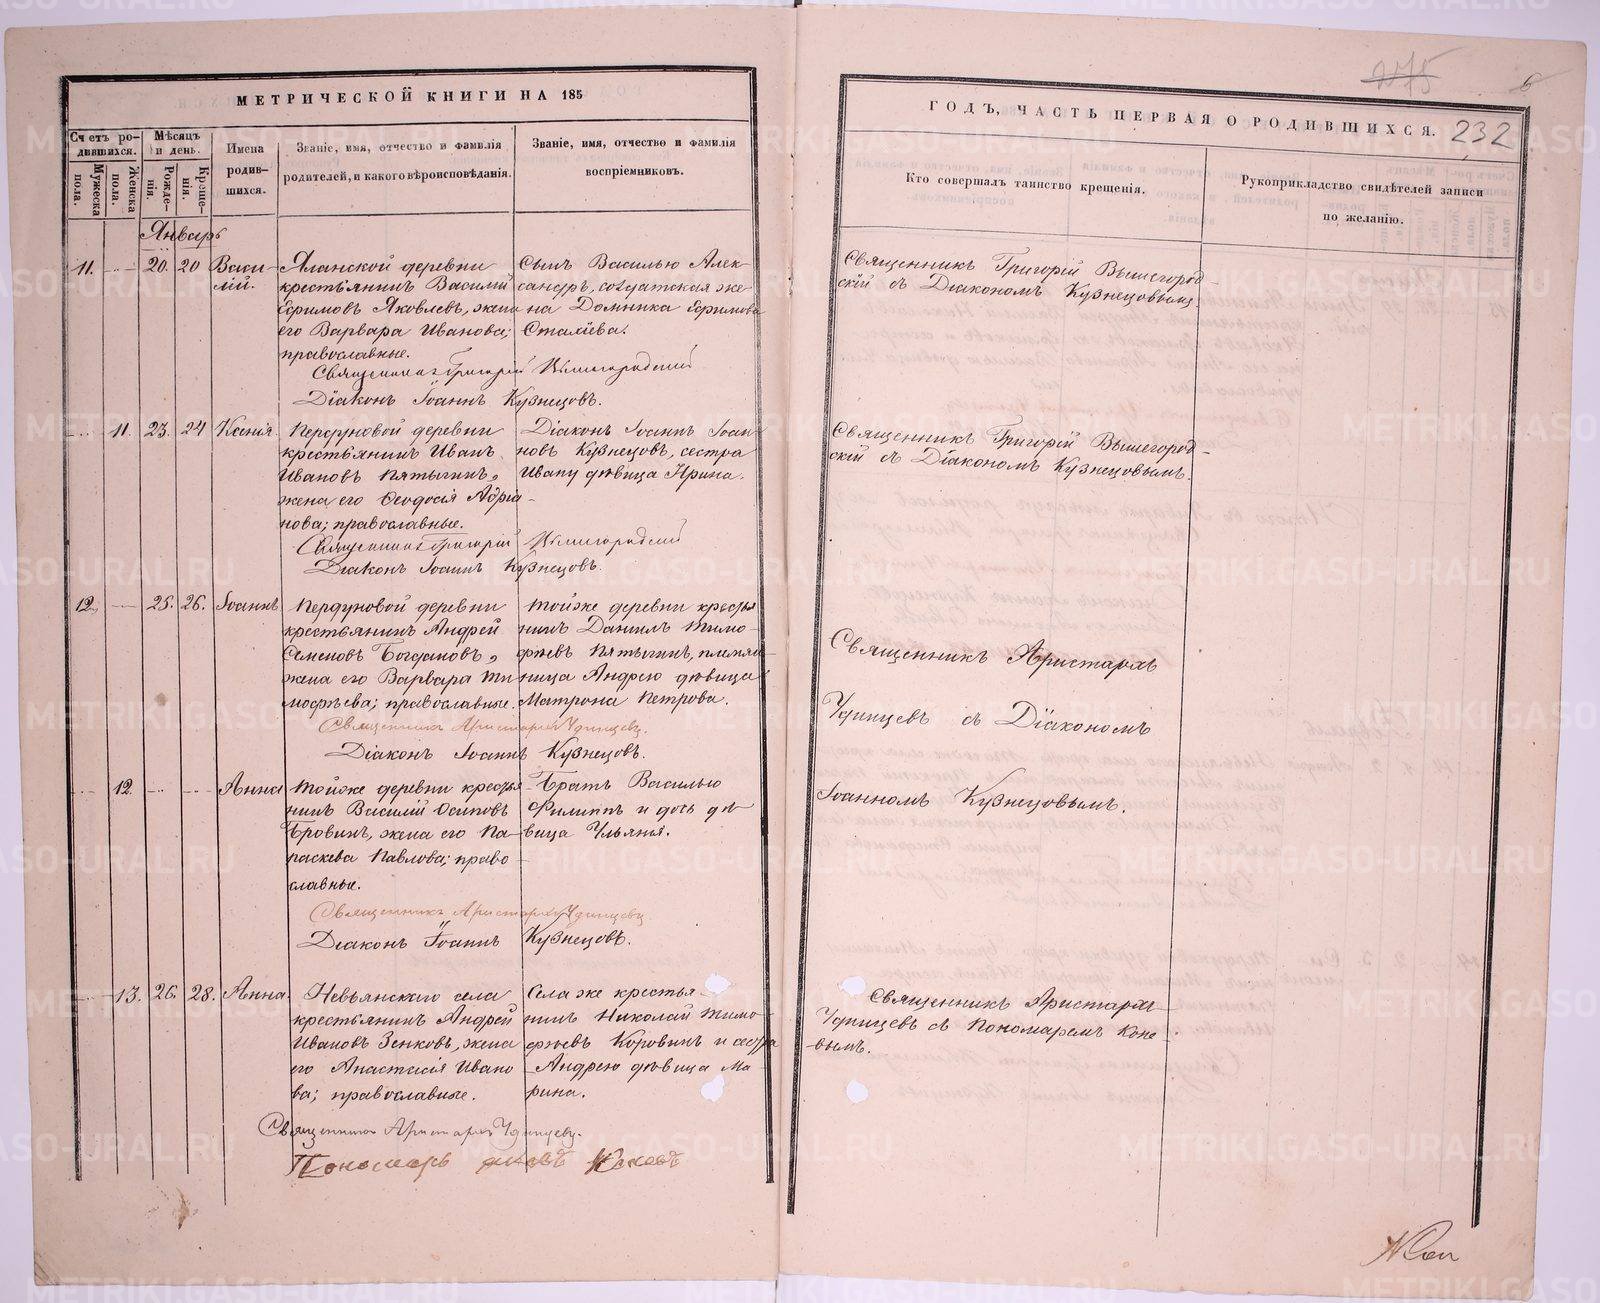 МЕТРИЧЕСКОЙ КНИГИ НА 185
Счетъ ро-
дившихся.
Мѣсяцъ
и день.
Мужеска
пола.
Женска
пола.
Рожде-
нія.
Креще-
нія.
Имена
родив-
шихся.
Званіе, имя, отчество и фамилія
родителей, и какого вѣроисповѣданія.
Званіе, имя, отчество и фамилія
воспріемниковъ.
Январь
11. 20. 20 Васи-
лій.
Яланской деревни
крестьянинъ Василій
Ефимовъ Яковлевъ, жена
его Варвара Иванова;
православные.
Сынъ Василью Алек-
сандръ, солдатская же-
на Домника Ефимова
Священникъ Григорій Вышегородскій
Діаконъ Іоаннъ Кузнецовъ.
11. 23. 24 Ксенія.
деревни
крестьянинъ Иванъ
Ивановъ Пятыгинъ,
жена его Ѳеодосія Адрія-
нова; православные.
Діаконъ Іоаннъ Іоан-
новъ Кузнецовъ, сестра
Ивану дѣвица Ирина.
Священникъ Григорій Вышегородскій
Діаконъ Іоаннъ Кузнецовъ.
12. 25. 26. Іоаннъ
деревни
крестьянинъ Андрей
Семеновъ Богдановъ,
жена его Варвара Ти-
мофѣева; православные.
Тойже деревни кресть-
нинъ Даниилъ Тимо-
фѣевъ Пятыгинъ, племян-
ница Андрею дѣвица
Матрона Петрова.
Священникъ Аристархъ Удинцевъ.
Діаконъ Іоаннъ Кузнецовъ.
12. Анна
Тойже деревни крестья-
нинъ Василій Осиповъ
Бровинъ, жена его Па-
раскева Павлова; право-
славные.
Братъ Василью
Филиппъ и дочь дѣ-
вица Ульянія.
Священникъ Аристархъ Удинцевъ
Діаконъ Іоаннъ Кузнецовъ.
13. 26. 28. Анна.
Невьянскаго села
крестьянинъ Андрей
Ивановъ Зенковъ, жена
его Анастасія Ивано-
ва; православные.
Села же крестья-
нинъ Николай Тимо-
фѣевъ Коровинъ и сестра
Андрею дѣвица Ма-
рина.
Священникъ Аристархъ Удинцевъ.
Пономарь Коневъ
ГОДЪ, ЧАСТЬ ПЕРВАЯ О РОДИВШИХСЯ.
232
Кто совершалъ таинство крещенія.
Рукоприкладство свидѣтелей записи
по желанію.
Священникъ Григорій Вышегород-
скій съ Діакономъ Кузнецовымъ
Священникъ Григорій Вышегород-
скій съ Діакономъ Кузнецовымъ.
Священникъ Аристархъ
Удинцевъ съ Діакономъ
Іоанномъ Кузнецовымъ.
Священникъ Аристархъ
Удинцевъ съ Пономаремъ Коне-
вымъ.
METRIKI.GASO-URAL.RU